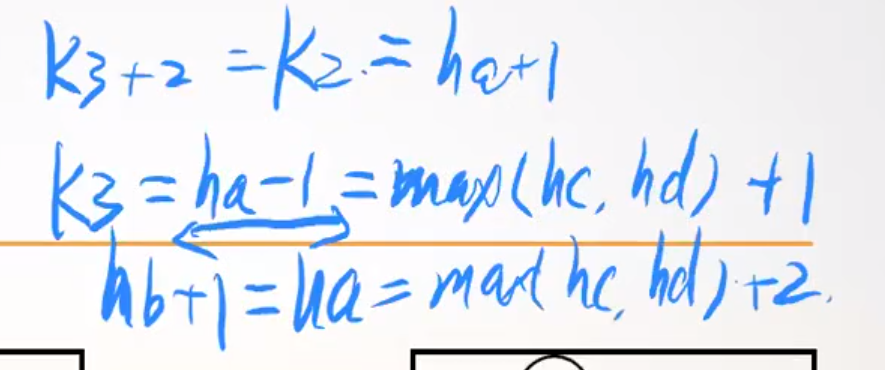 K3+2 = K2 = ha+1
K3 = ha-1 = max(hc, hd) + 1
hb+1 = ha = max(hc, hd) + 2.